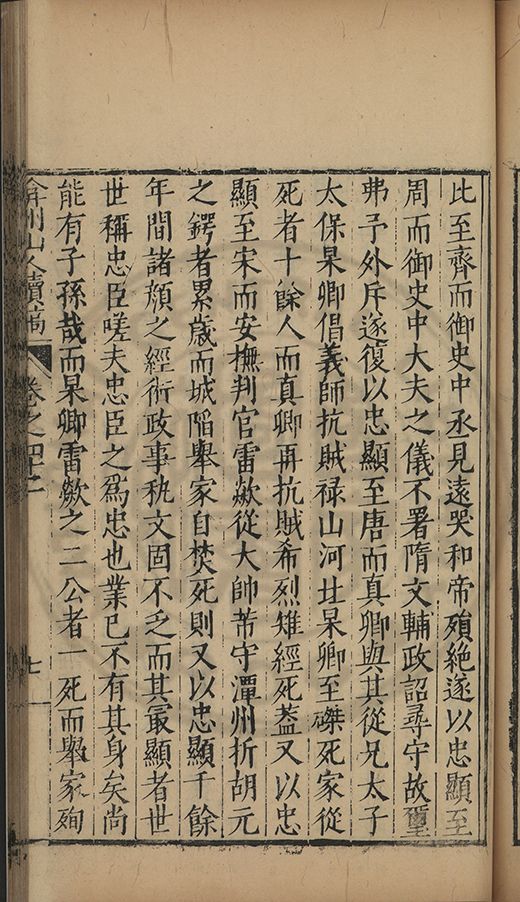 比至齊而御史中丞見遠哭和帝殞絶遂以忠顯至
周而御史中大夫之儀不署隋文輔政詔尋守故璽
弗予外斥遂復以忠顯至唐而真卿與其從兄太子
太保杲卿倡義師抗賊禄山河北杲卿至磔死家從
死者十餘人而真卿再抗賊希烈雉經死蓋又以忠
顯至宋而安撫判官雷歘從大帥芾守潭州折胡元
之鍔者累歲而城陷舉家自焚死則又以忠顯千餘
年間諸顔之經術政事秇文固不乏而其冣顯者世
世稱忠臣嗟夫忠臣之爲忠也業已不有其身矣尚
能有子孫哉而杲卿雷歘之二公者一死而舉家殉
弇州山人續稿 卷之四十二 七